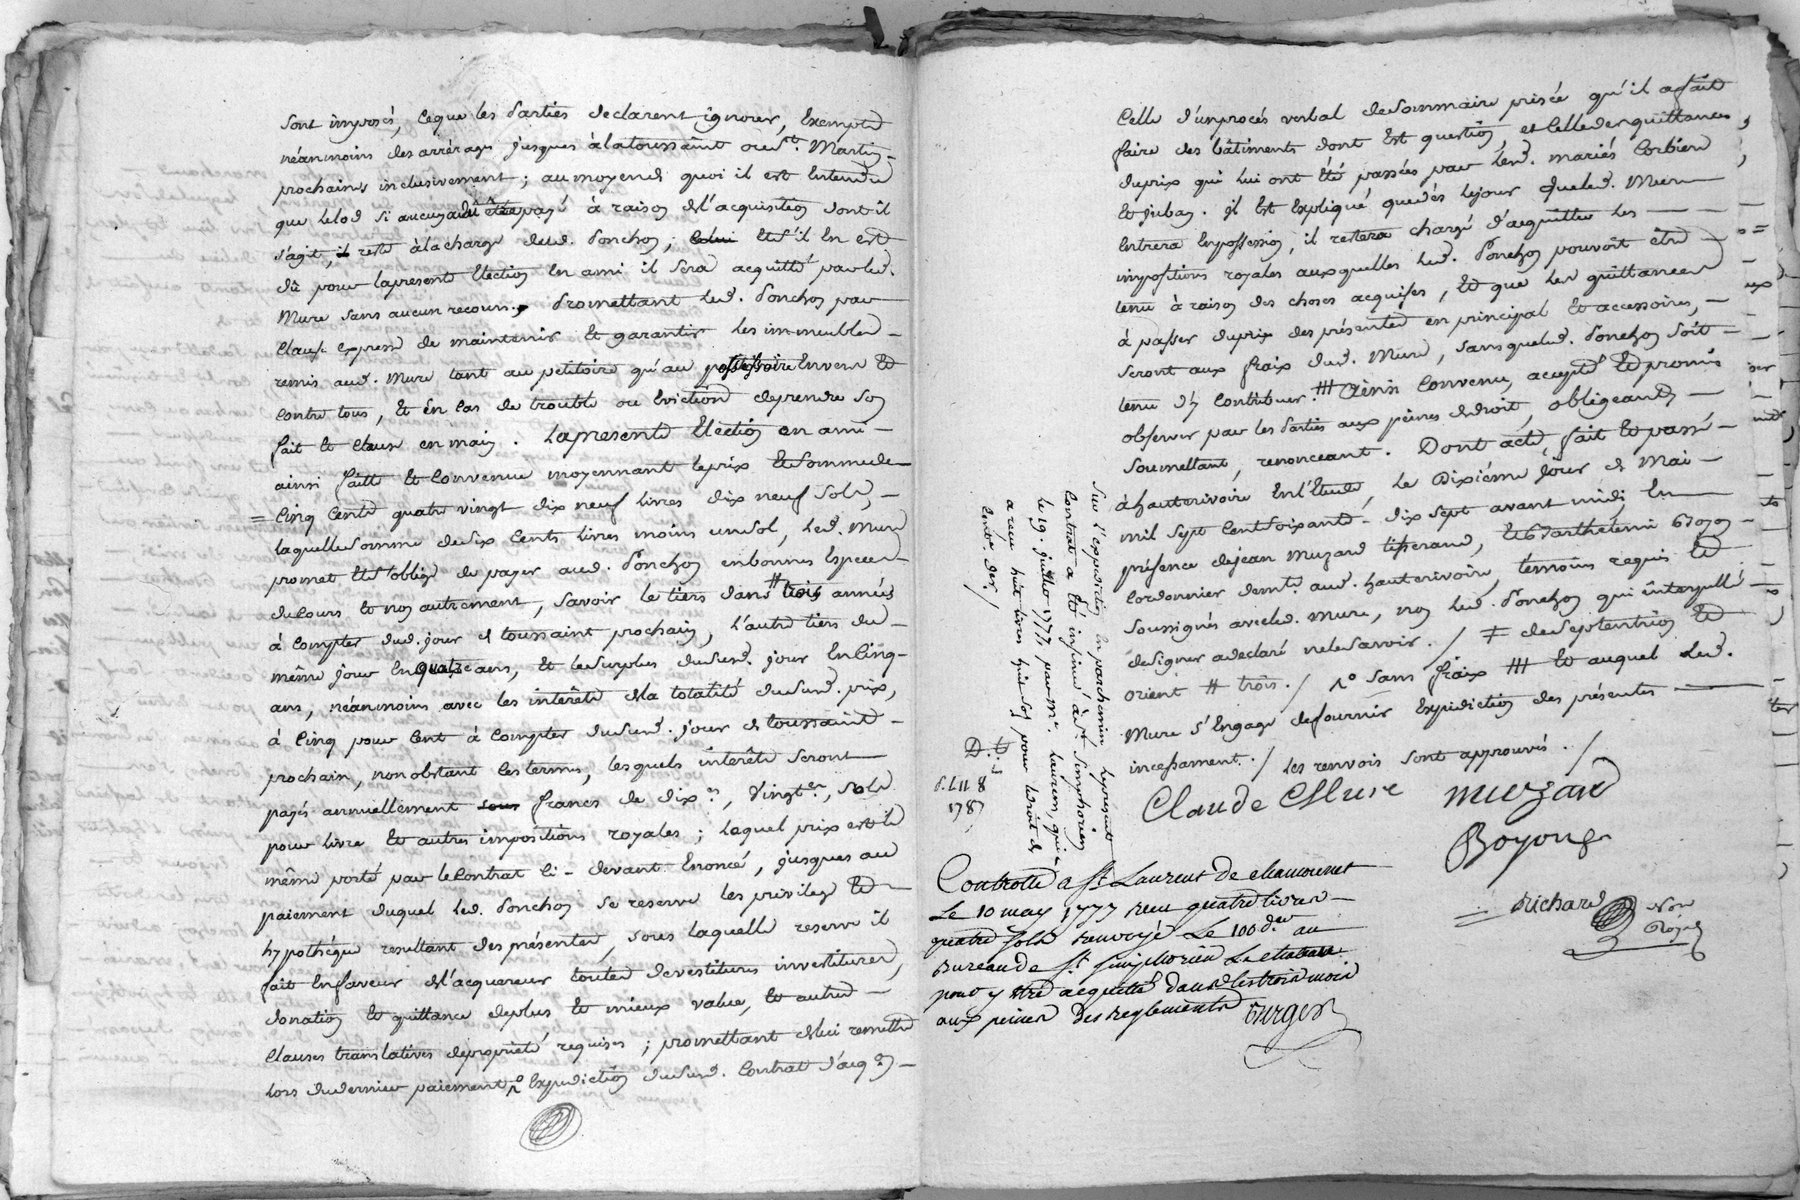 sont imposés, ce que les parties declarent ignorer, exempts
néanmoins des arrérages jusques à la toussaint ou st. Martin
prochains inclusivement ; au moyend quoi il est entendu
que le lod si aucun a dû être payé à raison de l'acquisition dont il
s'agit, il reste à la charge dud. Ponchon ; et s'il en est
dû pour la presente Election en ami il sera acquitté par led.
Mure sans aucun recours. Promettant led. Ponchon par
clause expresse de maintenir et garantir les immeubles
remis aud. Mure tant au petitoire qu'au possessoire envers et
contre tous, et en cas de trouble ou eviction de prendre son
fait et cause en main. La presente Election en ami
ainsi faitte et convenue moyennant le prix et somme de
= cinq cents quatre vingt dix neuf livres dix neuf sols,
laquelle somme de six cents livres moins un sol, led. Mure
promet et s'oblige de payer aud. Ponchon en bonnes especes
du cours et non autrement, savoir le tiers dans # trois années
à compter dud. jour de toussaint prochain, l'autre tiers du
même jour en quatre ans, et le surplus dususd. jour en cinq
ans, néanmoins avec les intérêts de la totalité dususd. prix,
à cinq pour cent à compter dususd. jour de toussaint
prochain, nonobstant les termes, lesquels intérêts seront
payés annuellement francs de dix.es, vingt.es, sols
pour livre et autres impositions royales ; laquel prix est le
même porté par le contrat ci-devant énoncé, jusques au
paiement duquel led. Ponchon se reserve les privileges et
hypothéque resultant des présentes, sous laquelle reserve il
fait en faveur de l'acquereur toutes devestitures investitures,
donation et quittance de plus et mieux value, et autres
clauses translatives de proprieté requises ; promettant de lui remettre
lors du dernier paiement expediction dususd. contrat d'acq.on
Celle d'un procés verbal de sommaire prisée qu'il a fait
faire des bâtiments dont est question, et celle des quittances
du prix qui lui ont été passées par lesd. mariés Corbier
et Juban. Il est expliqué que dés le jour que led. Mure
entrera en possession, il restera chargé d'acquitter les
impositions royales auxquelles led. Ponchon pouvoit être
tenu à raison des choses acquises, et que les quittances
à passer du prix des présentes en principal et accessoires,
seront aux fraix dud. Mure, sans que led. Ponchon soit
tenu d'y contribuer. ### Ainsi convenu, accepté et promis
observer par les Parties aux peines de droit, obligeants
soumettant, renonceant. Dont acte, fait et passé
à hauterivoire en l'Etude, le Dixiéme jour de Mai
mil sept cent soixante-dix sept avant midi, en
présence de jean muzard tisserand, et Barthelemi Boyon
cordonnier demts. aud. hauterivoire, témoins requis et
soussignés avec led. mure, non led. Ponchon qui interpellé
de signer a declaré ne le savoir. / ≠ de septentrion et
orient # trois. / sans fraix ### et auquel led.
Mure s'engage de fournir expediction des présentes
incessament. / les renvois sont approuvés. /
Claude Mure muzard
Boyon
Richard Not
Royal
Sur l'expediction en parchemin le present
contrat a été insinué à st. simphorien
le 19. juillet 1777. par mr. laurens, qui
a reçu huit livres huit sol pour droit de
cent.e der. /
1787
Controllé a st Laurent de chamousset
Le 10 may 1777 reçu quatre livres
quatre sols renvoyé Le 100.e der au
Bureau de st. simphorien Le chateau
pour y etre acquitté dans les trois mois
aux peines des reglements